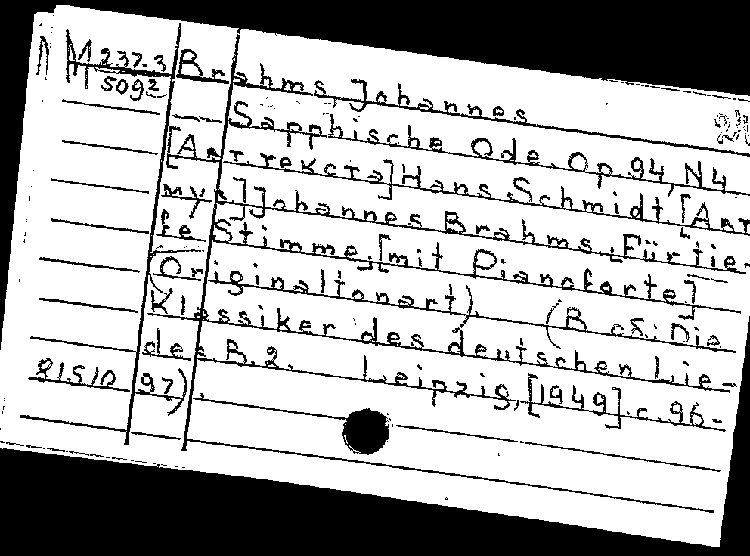 М 237-3 Brahms, Johannes
5092
Sapphische Ode. Op. 94, N4
[Авт. текста] Hans Schmidt, [Авт.
муз.] Johannes Brahms. Für tie-
fe Stimme, [mit Pianoforte]
(Originaltonart). (В сб: Die
Klassiker des deutschen Lie-
des B. 2. Leipzig, [1949]. c. 96-
81510 97).